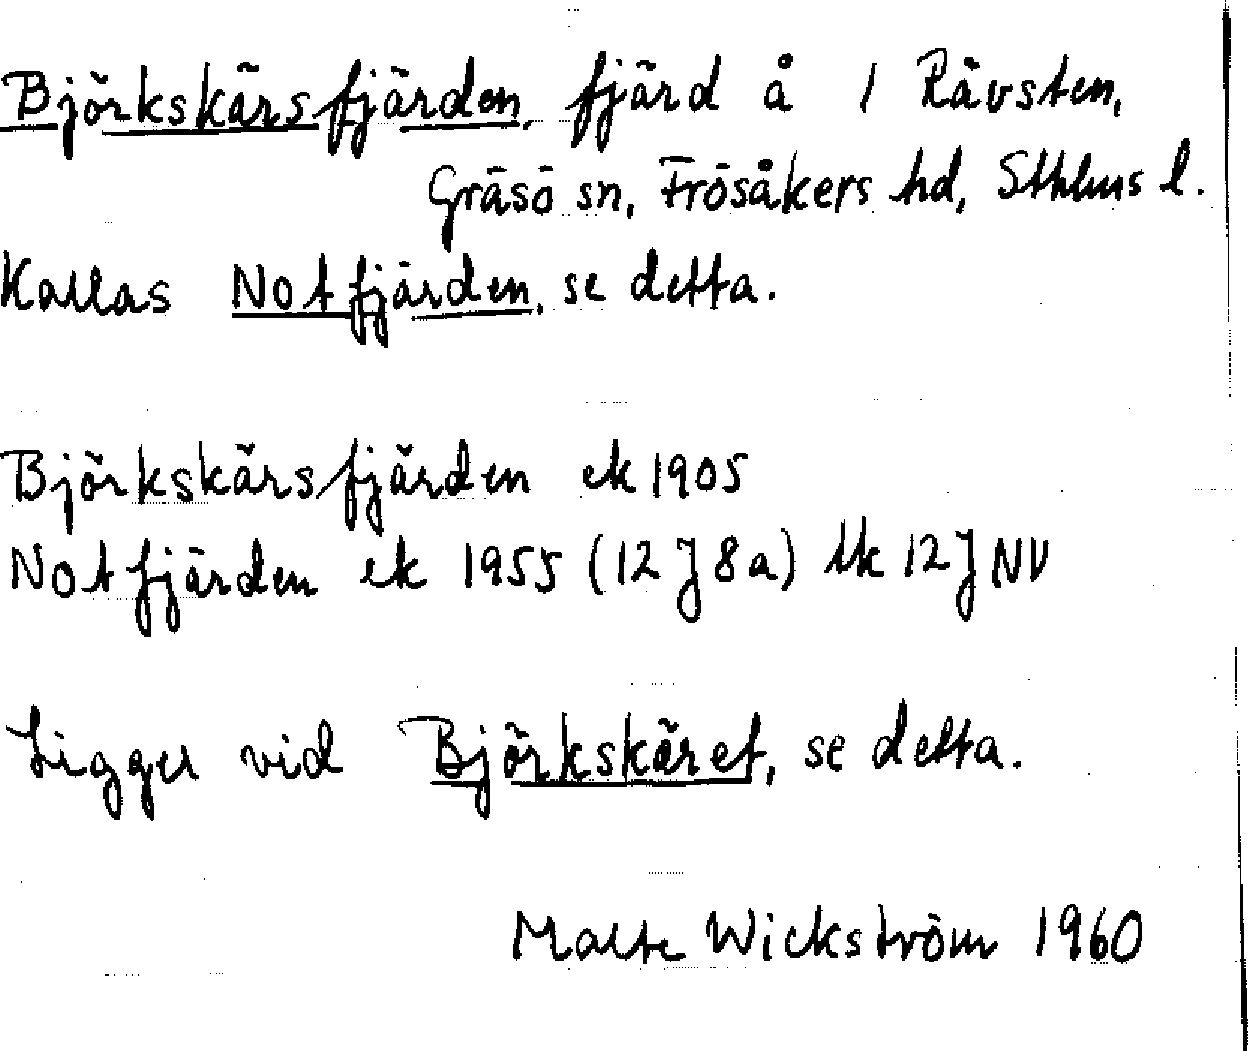 Björkskärsfjärden, fjärd å 1 Rävsten,
Gräsö sn, Frösåkers hd, Sthlms l.
Kallas Notfjärden, se detta.
Björkskärsfjärden ek 1905
Notfjärden ek 1955 (12 J 8a) tk 12 J NV
Ligger vid Björkskäret, se detta.
Malte Wickström 1960